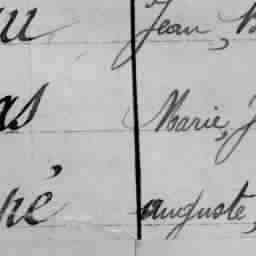 Jean,
as Marie, J
pé auguste,